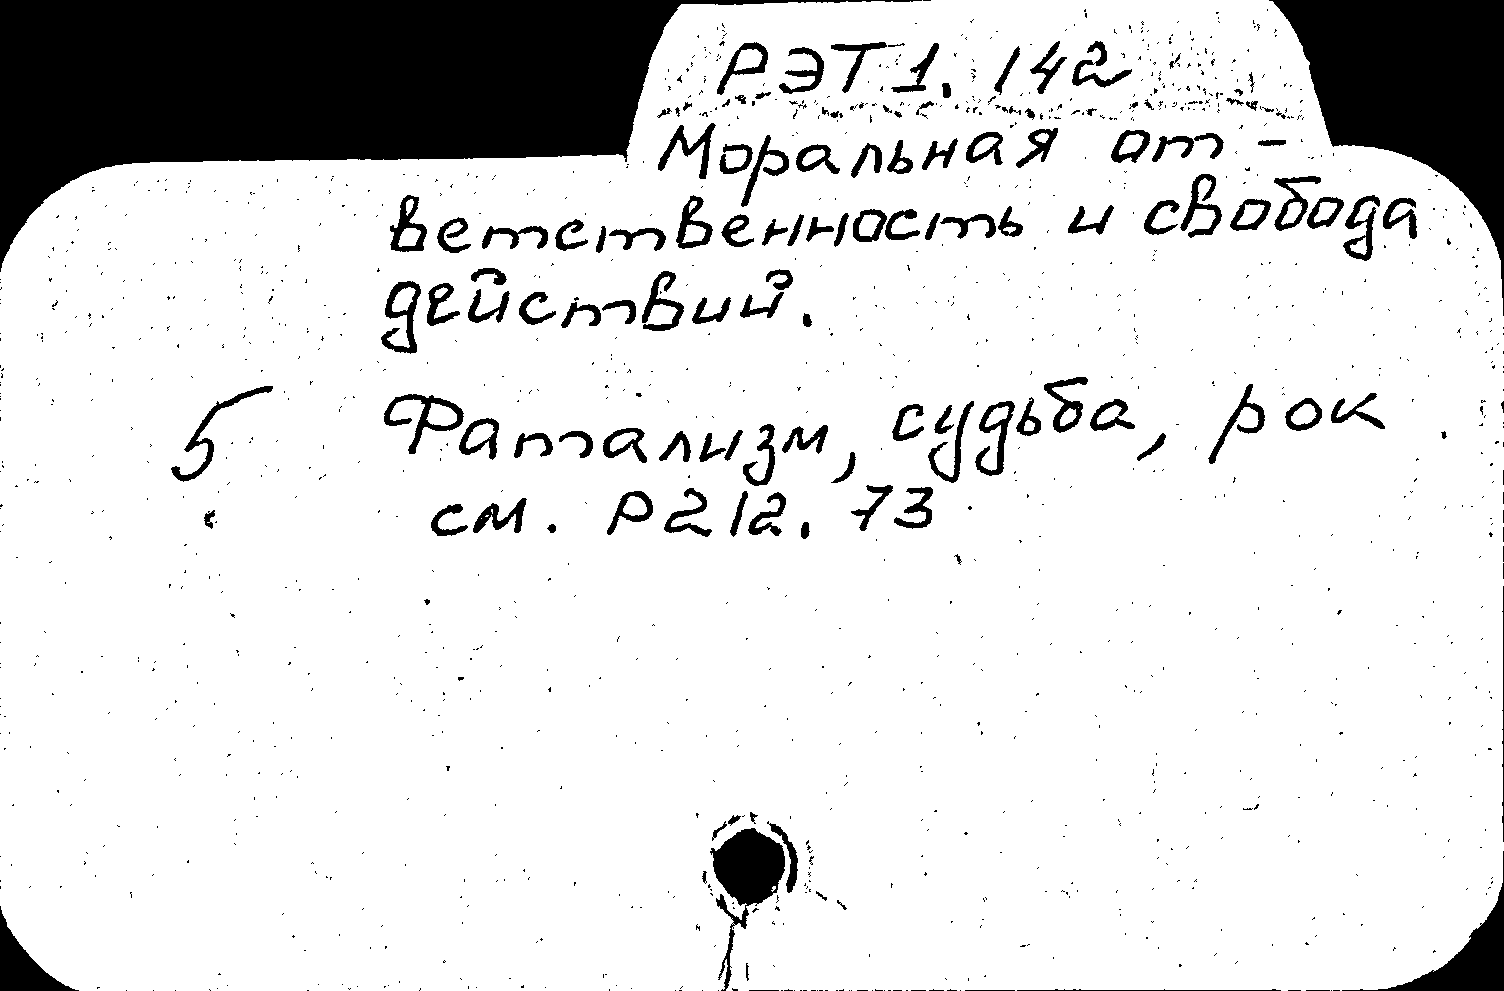 РЭТ1.142
Моральная от-
ветственность и свобода
действий.
5 Фатализм, судьба, рок
см. Р212.73